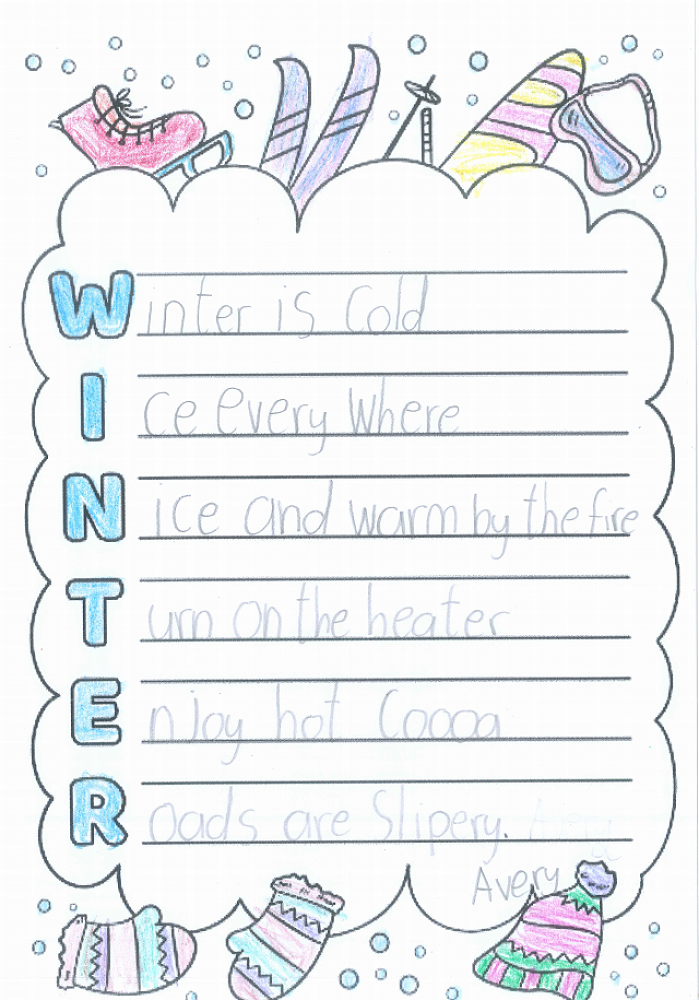 Winter is Cold
Ice every Where
Nice and warm by the fire
Turn on the heater
EnJoy hot Cocoa
Roads are Slipery.
Avery